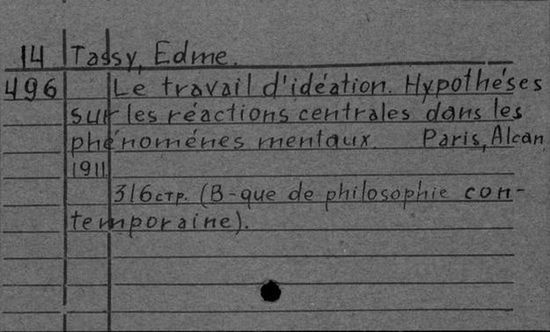 14 Tassy, Edme.
496 Le travail d'idéation. Hypothéses
sur les réactions centrales dans les
phénoménes mentaux. Paris, Alcan
1911
316 стр. (B-que de philosophie con-
temporaine).